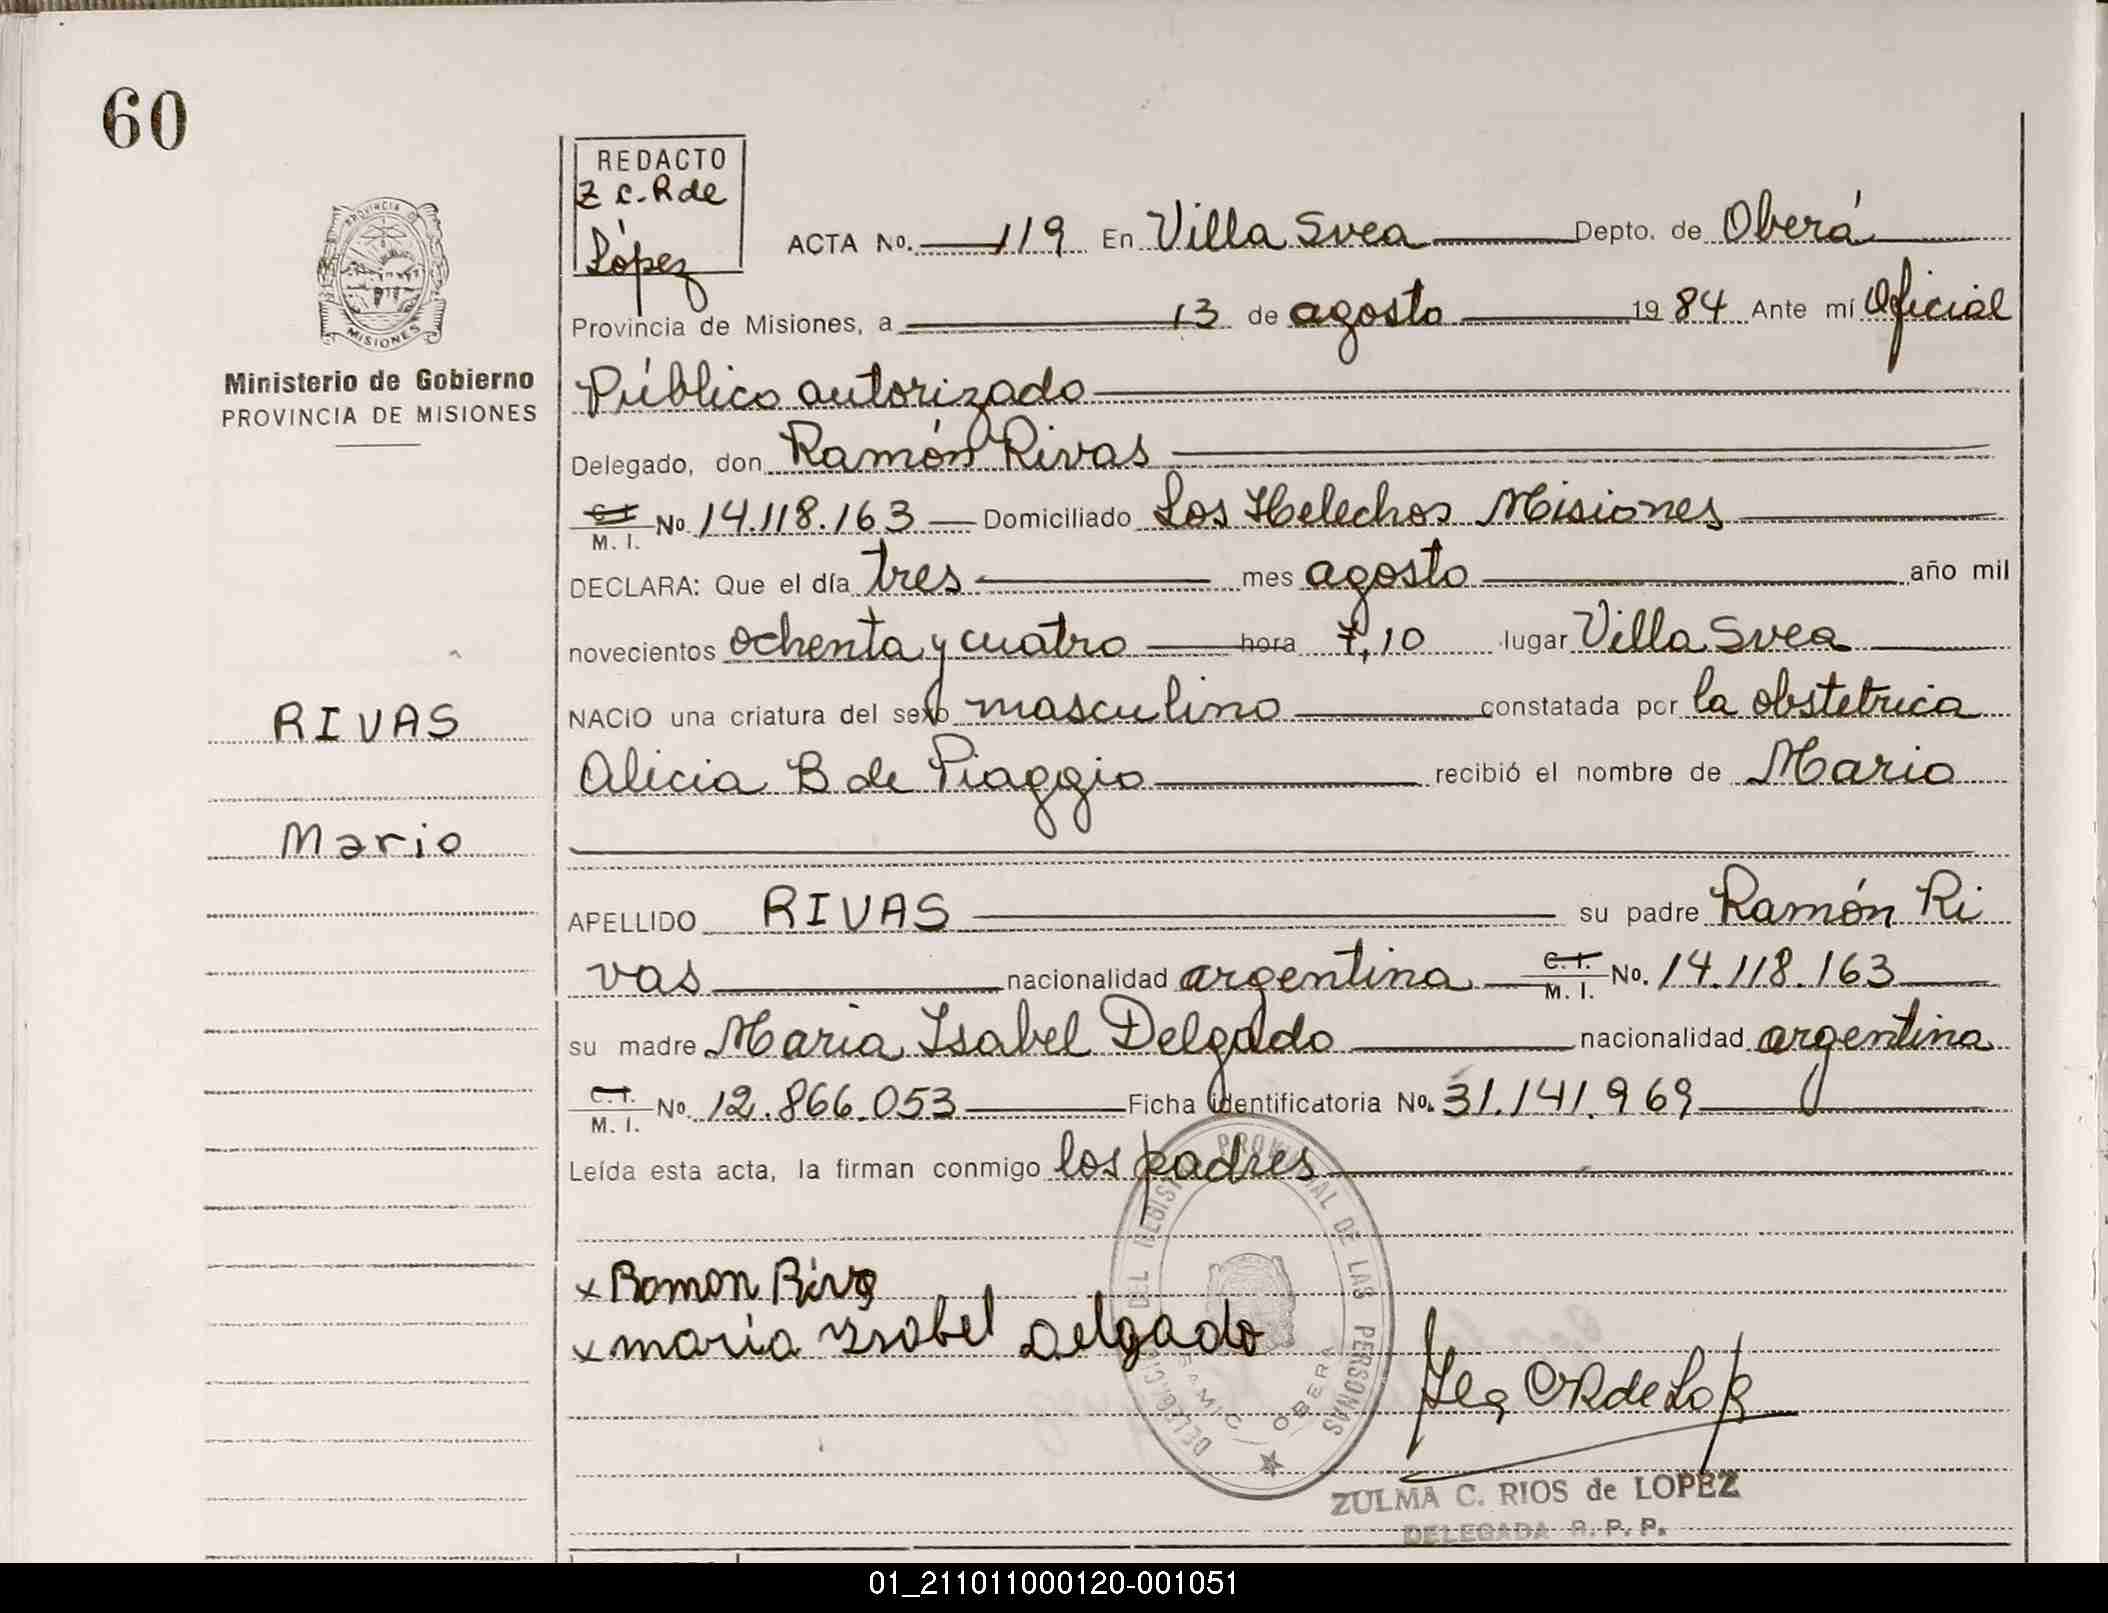 60
REDACTO
Z C. R de
López
ACTA No. 119 En Villa Svea Depto. de Oberá
Provincia de Misiones, a 13 de agosto 1984 Ante mí Oficial
Público autorizado
Delegado, don Ramón Rivas
C. I. M. I. No. 14.118.163 Domiciliado Los Helechos Misiones
DECLARA: Que el día tres mes agosto año mil
novecientos ochenta y cuatro hora 7,10 lugar Villa Svea
NACIO una criatura del sexo masculino constatada por la obstetrica
Alicia B de Piaggio recibió el nombre de Mario
APELLIDO RIVAS su padre Ramón Ri
vas nacionalidad argentina C. I. M. I. No. 14.118.163
su madre Maria Isabel Delgado nacionalidad argentina
C. I. M. I. No. 12.866.053 Ficha identificatoria No. 31.141.969
Leída esta acta, la firman conmigo los padres
x Ramon Rivas
x maria Ysabel Delgado
ZULMA C. RIOS de LOPEZ
DELEGADA R. P. P.
PROVINCIA DE MISIONES
Ministerio de Gobierno
PROVINCIA DE MISIONES
RIVAS
Mario
DEL REGISTRO PROVINCIAL DE LAS PERSONAS
OBERA
01_211011000120-001051